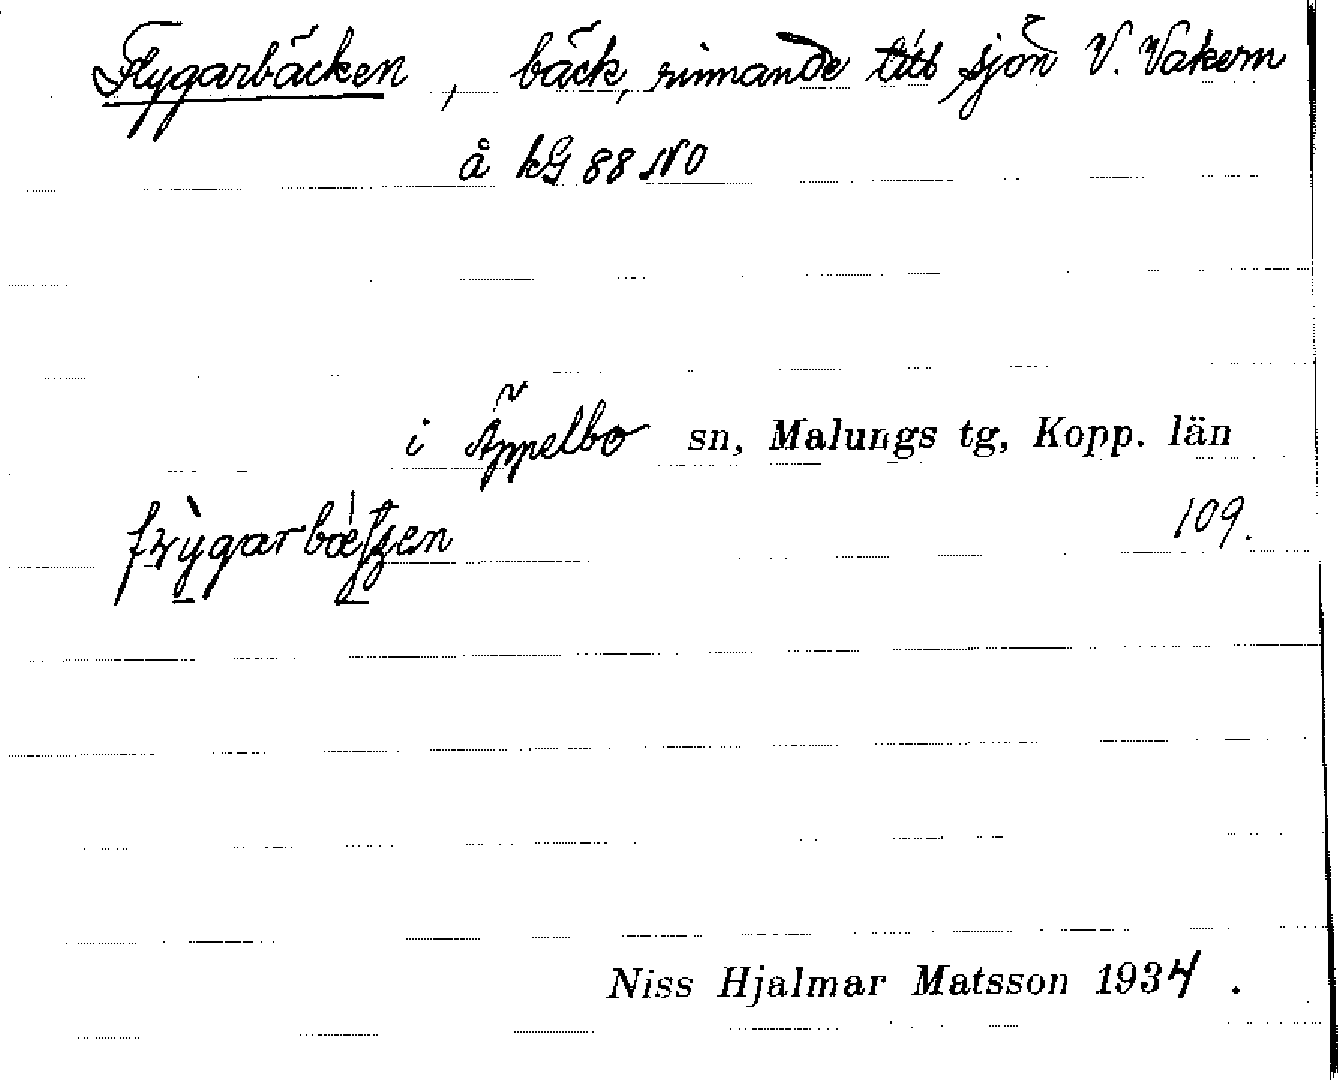 Flygarbäcken, bäck, rinnande till sjön V. Vakern
å kG 88 NO
i Äppelbo sn, Malungs tg, Kopp. län
109.
Niss Hjalmar Matsson 1934.